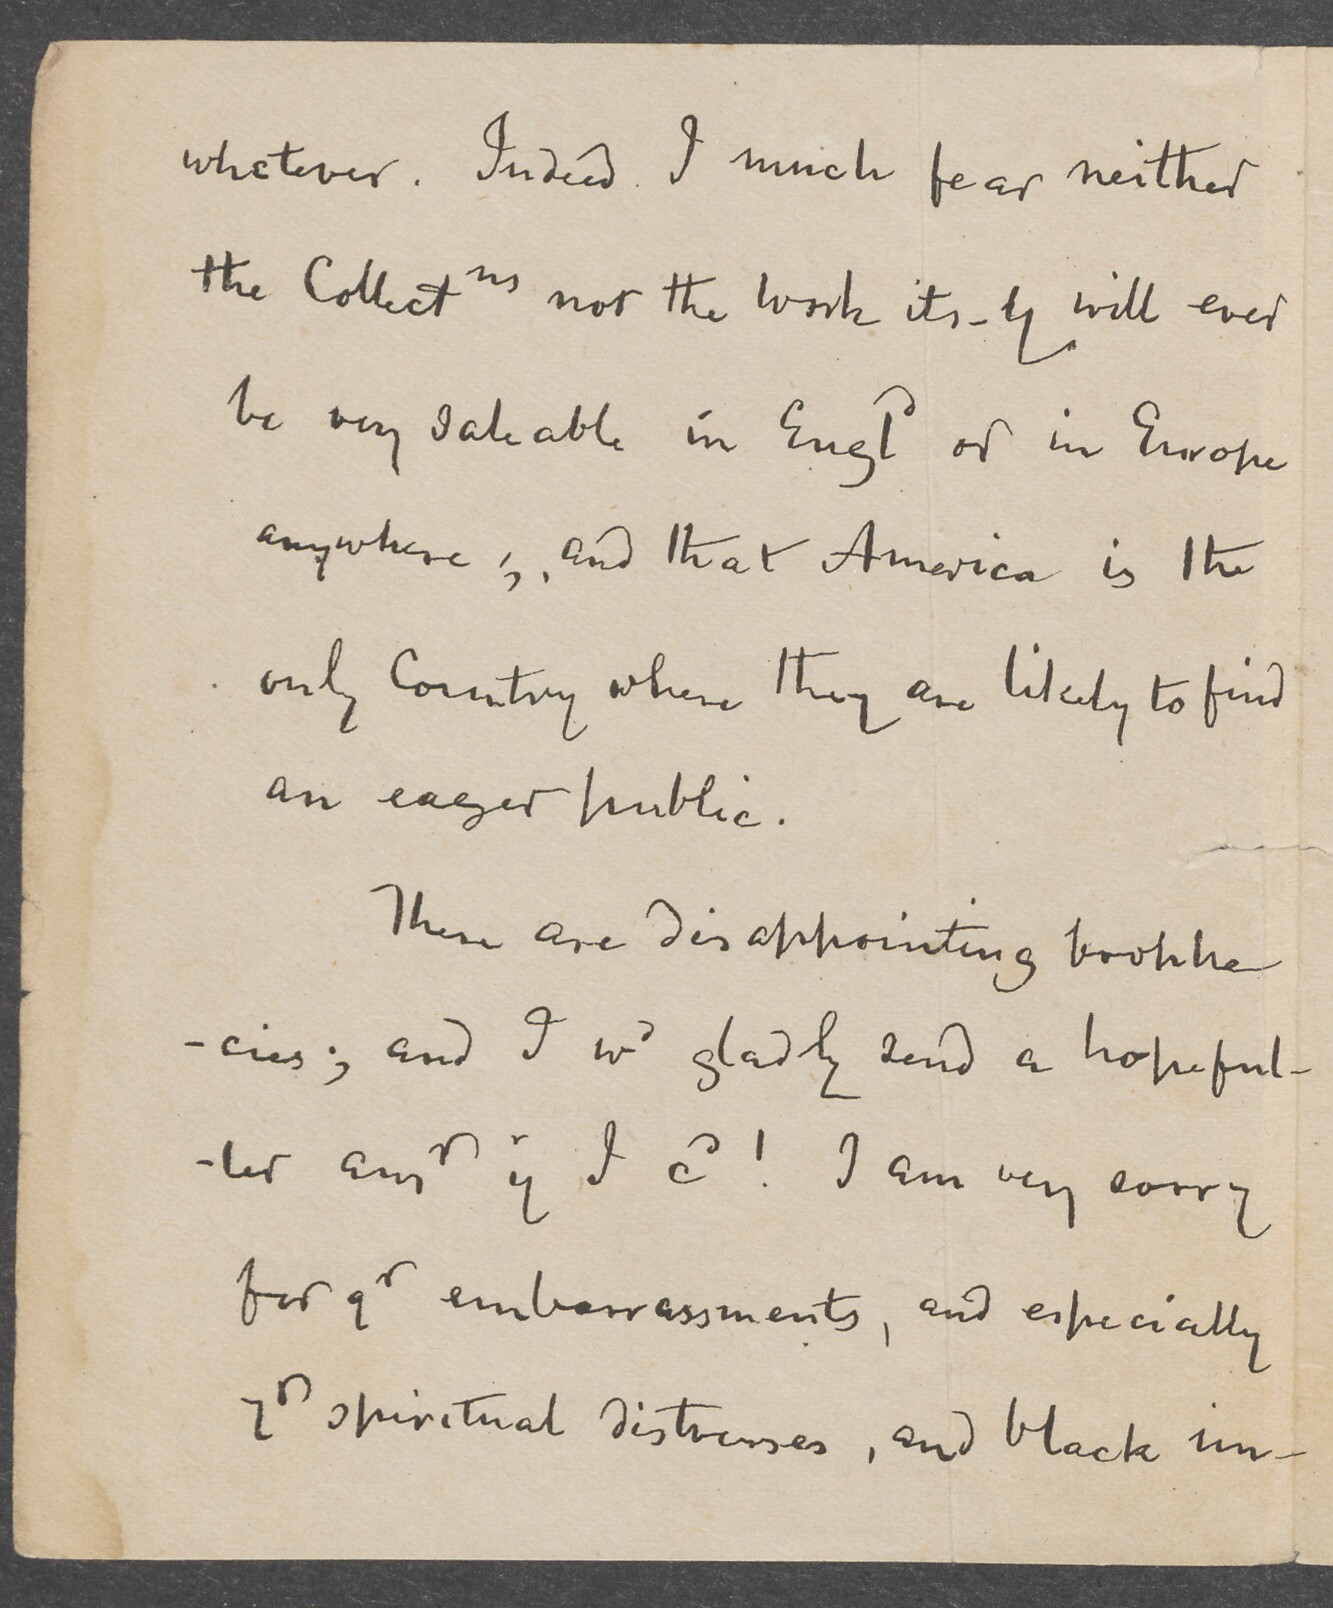 whatever. Indeed I much fear neither
the Collectns nor the work its-lf will ever
be very saleable in Engld or in Europe
anywhere; and that America is the
only Country where they are likely to find
an eager public.
These are disappointing prophe
-cies; and I wd gladly send a hopeful-
-ler ansr if I cd! I am very sorry
for yr embarrassments, and especially
yr spiritual distresses, and black im-